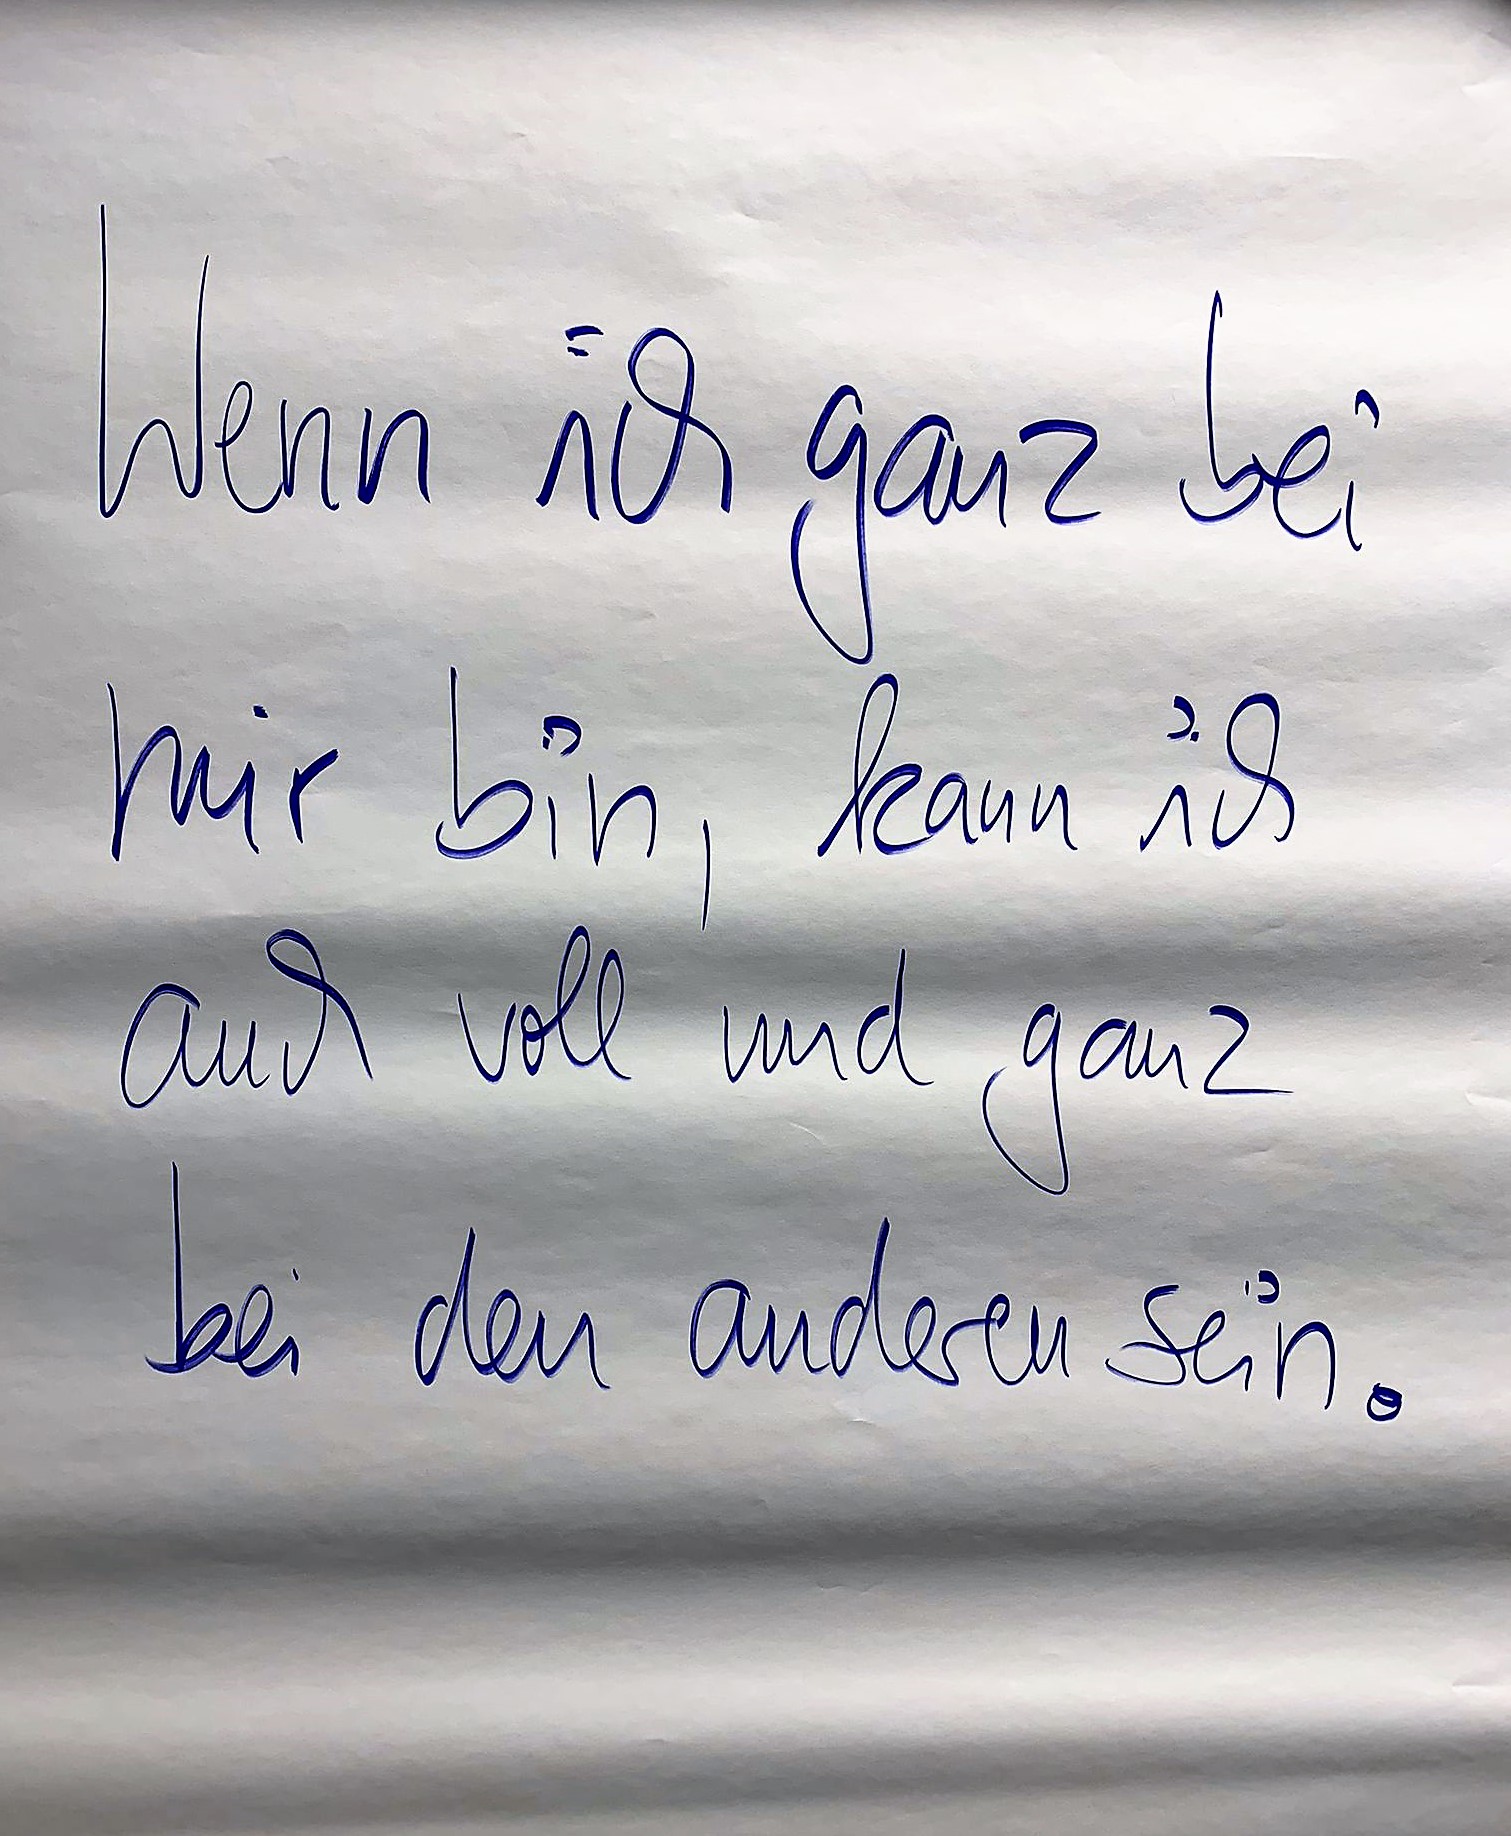 Wenn ich ganz bei
mir bin, kann ich
auch voll und ganz
bei den anderen sein.